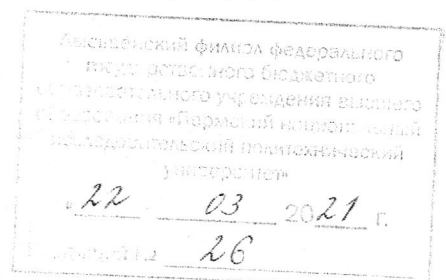 Лысьвенский филиал федерального
государственного бюджетного
образовательного учреждения высшего
образования «Пермский национальный
исследовательский политехнический
университет»
« 22 » 03 2021 г.
26